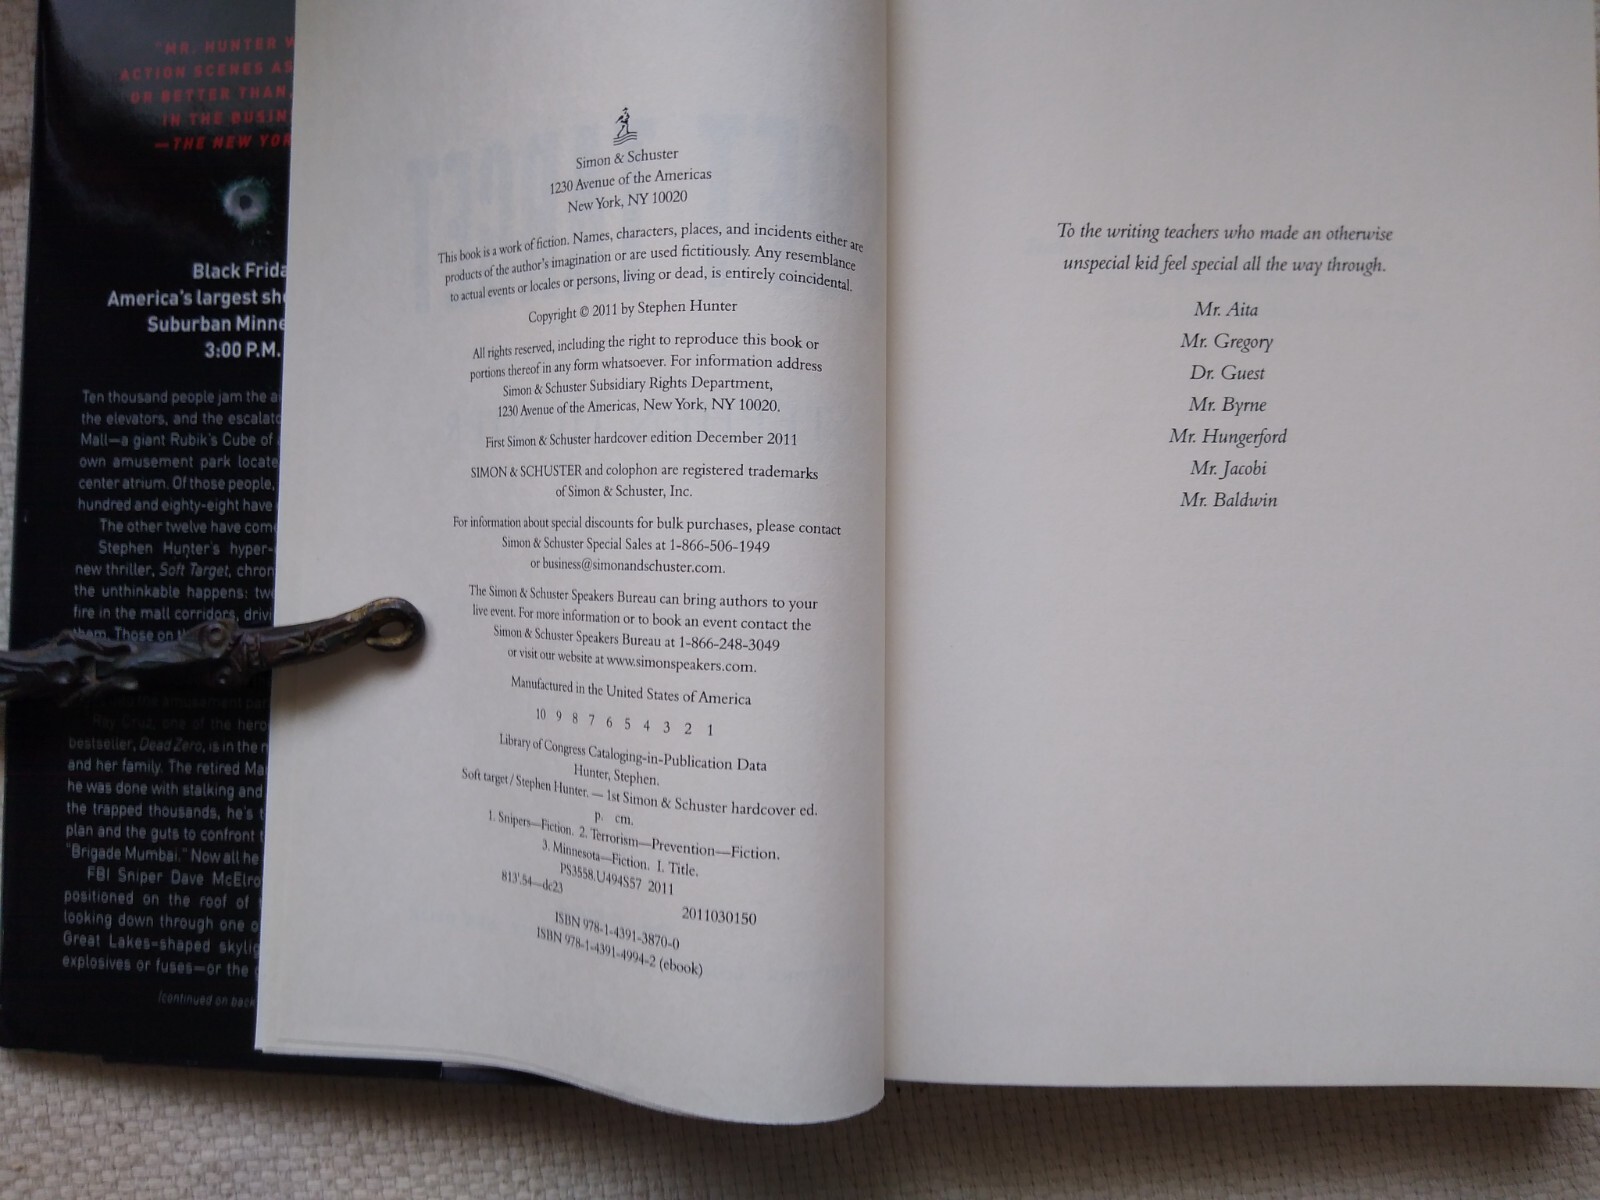 "MR. HUNTER
ACTION SCENES AS
OR BETTER THAN,
IN THE
—THE NEW
Black
America's largest
Suburban
3:00 P.M.
Ten thousand people jam the
the elevators, and the
Mall—a giant Rubik's Cube of
own amusement park
center atrium. Of those people,
hundred and eighty-eight have
The other twelve have
Stephen Hunter's hyper-
new thriller, Soft Target,
the unthinkable happens:
fire in the mall corridors,
them. Those on
Ray Cruz, one of the
bestseller, Dead Zero, is in the
and her family. The retired
he was done with stalking and
the trapped thousands, he's
plan and the guts to confront
"Brigade Mumbai." Now all he
FBI Sniper Dave
positioned on the roof of
looking down through one
Great Lakes-shaped
explosives or fuses—or the
(continued on back
Simon & Schuster
1230 Avenue of the Americas
New York, NY 10020
This book is a work of fiction. Names, characters, places, and incidents either are
products of the author's imagination or are used fictitiously. Any resemblance
to actual events or locales or persons, living or dead, is entirely coincidental.
Copyright © 2011 by Stephen Hunter
All rights reserved, including the right to reproduce this book or
portions thereof in any form whatsoever. For information address
Simon & Schuster Subsidiary Rights Department,
1230 Avenue of the Americas, New York, NY 10020.
First Simon & Schuster hardcover edition December 2011
SIMON & SCHUSTER and colophon are registered trademarks
of Simon & Schuster, Inc.
For information about special discounts for bulk purchases, please contact
Simon & Schuster Special Sales at 1-866-506-1949
or business@simonandschuster.com.
The Simon & Schuster Speakers Bureau can bring authors to your
live event. For more information or to book an event contact the
Simon & Schuster Speakers Bureau at 1-866-248-3049
or visit our website at www.simonspeakers.com.
Manufactured in the United States of America
10 9 8 7 6 5 4 3 2 1
Library of Congress Cataloging-in-Publication Data
Hunter, Stephen.
Soft target / Stephen Hunter. — 1st Simon & Schuster hardcover ed.
p. cm.
1. Snipers—Fiction. 2. Terrorism—Prevention—Fiction.
3. Minnesota—Fiction. I. Title.
PS3558.U494S57 2011
813'.54—dc23
2011030150
ISBN 978-1-4391-3870-0
ISBN 978-1-4391-4994-2 (ebook)
To the writing teachers who made an otherwise
unspecial kid feel special all the way through.
Mr. Aita
Mr. Gregory
Dr. Guest
Mr. Byrne
Mr. Hungerford
Mr. Jacobi
Mr. Baldwin